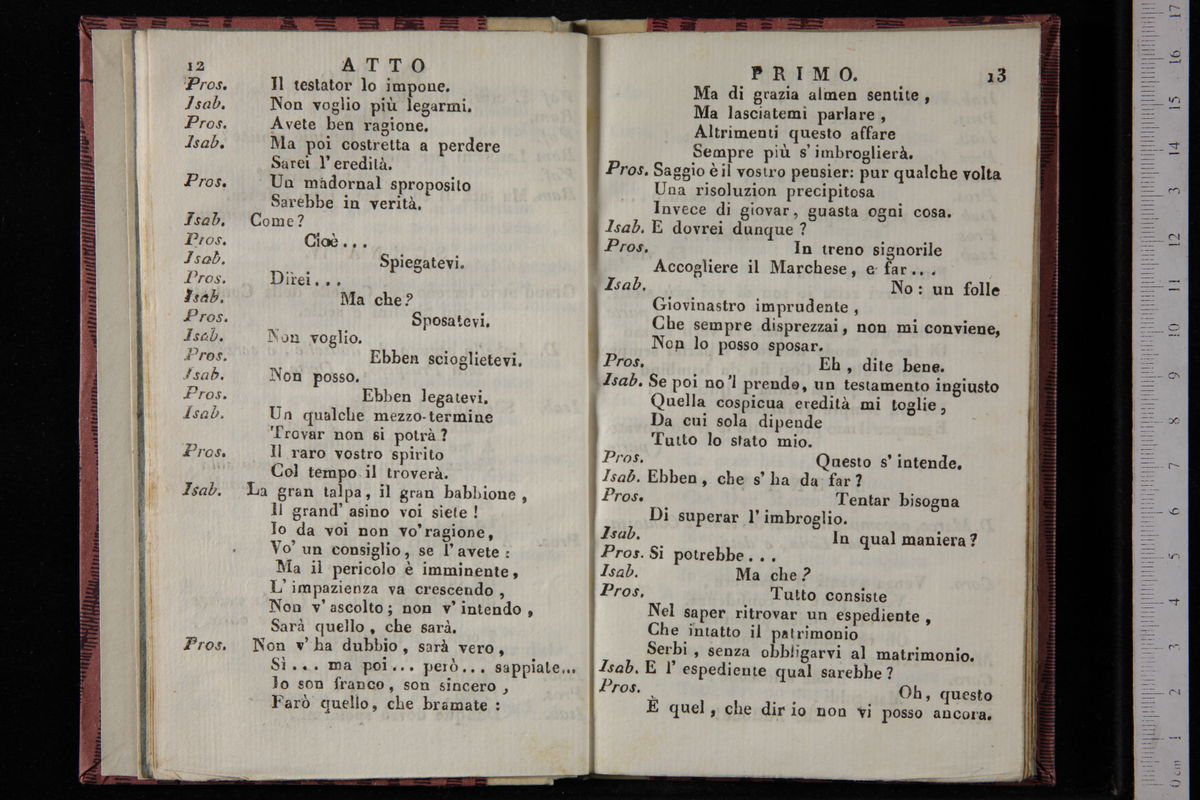 12 ATTO
Pros. Il testator lo impone.
Isab. Non voglio più legarmi.
Pros. Avete ben ragione.
Isab. Ma poi costretta a perdere
Sarei l'eredità.
Pros. Un madornal sproposito
Sarebbe in verità.
Isab. Come?
Pros. Cioè...
Isab. Spiegatevi.
Pros. Direi...
Isab. Ma che?
Pros. Sposatevi.
Isab. Non voglio.
Pros. Ebben scioglietevi.
Isab. Non posso.
Pros. Ebben legatevi.
Isab. Un qualche mezzo-termine
Trovar non si potrà?
Pros. Il raro vostro spirito
Col tempo il troverà.
Isab. La gran talpa, il gran babbione,
Il grand' asino voi siete!
Io da voi non vo' ragione,
Vo' un consiglio, se l'avete:
Ma il pericolo è imminente,
L' impazienza va crescendo,
Non v' ascolto; non v' intendo,
Sarà quello, che sarà.
Pros. Non v' ha dubbio, sarà vero,
Sì... ma poi... però... sappiate...
Io son franco, son sincero,
Farò quello, che bramate:
PRIMO. 13
Ma di grazia almen sentite,
Ma lasciatemi parlare,
Altrimenti questo affare
Sempre più s' imbroglierà.
Pros. Saggio è il vostro pensier: pur qualche volta
Una risoluzion precipitosa
Invece di giovar, guasta ogni cosa.
Isab. E dovrei dunque?
Pros. In treno signorile
Accogliere il Marchese, e far...
Isab. No: un folle
Giovinastro imprudente,
Che sempre disprezzai, non mi conviene,
Non lo posso sposar.
Pros. Eh, dite bene.
Isab. Se poi no 'l prendo, un testamento ingiusto
Quella cospicua eredità mi toglie,
Da cui sola dipende
Tutto lo stato mio.
Pros. Questo s' intende.
Isab. Ebben, che s' ha da far?
Pros. Tentar bisogna
Di superar l' imbroglio.
Isab. In qual maniera?
Pros. Si potrebbe...
Isab. Ma che?
Pros. Tutto consiste
Nel saper ritrovar un espediente,
Che intatto il patrimonio
Serbi, senza obbligarvi al matrimonio.
Isab. E l' espediente qual sarebbe?
Pros. Oh, questo
È quel, che dir io non vi posso ancora.
0 cm 1 2 3 4 5 6 7 8 9 10 11 12 13 14 15 16 17